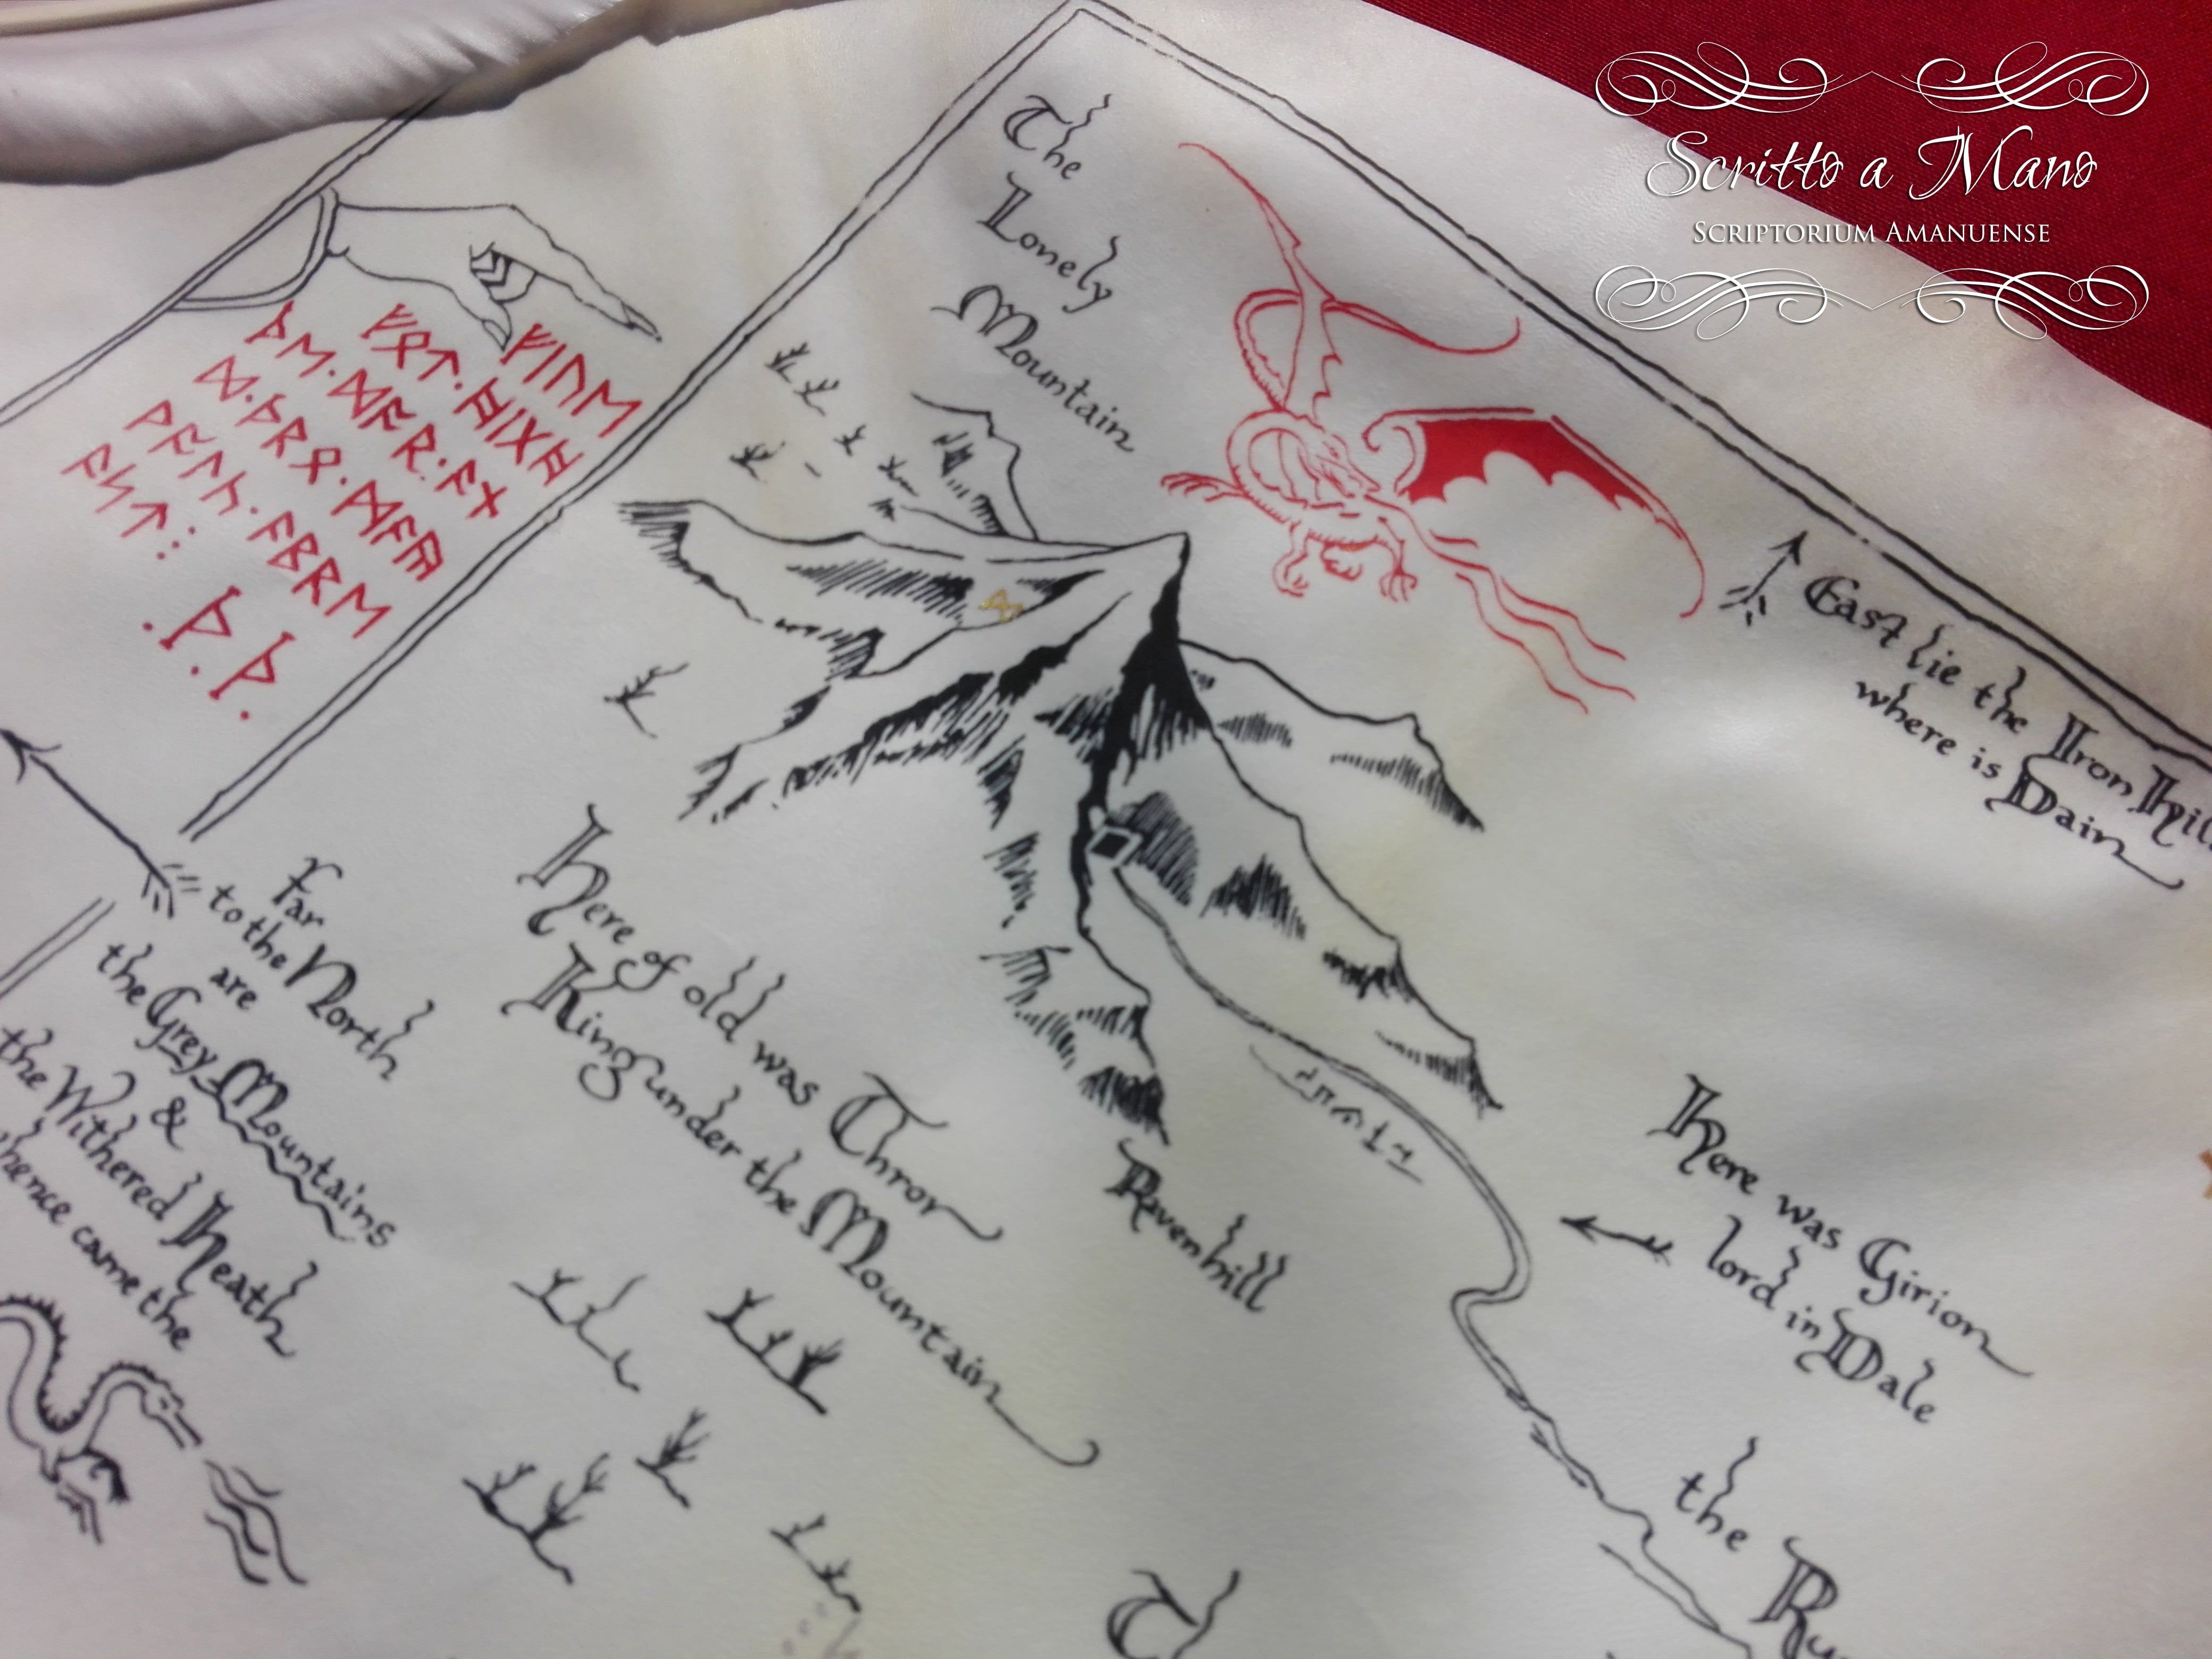 Scritto a Mano
SCRIPTORIUM AMANUENSE
The
Lonely
Mountain
ᚠᛁᚢᛖ
ᚠᛟᛏ·ᚻᛁᚷᚻ
ᚦᛖ·ᛞᚩᚱ·ᚪᚾ
ᛞ·ᚦᚱᛟ·ᛗᚪᚣ
ᚹᚪᛚᚳ·ᚪᛒᚱᛖ
ᚪᛋᛏ:·
·ᚦ·ᚦ·
East lie the Iron
where is Dain
Far
to the North
are
the Grey Mountains
&
the Withered Heath
whence came the
Here of old was Thror
King under the Mountain
Ravenhill
Here was Girion
lord in Dale
the